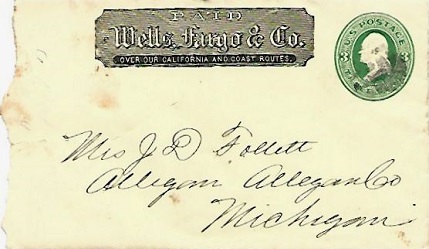 PAID
Wells, Fargo & Co.
OVER OUR CALIFORNIA AND COAST ROUTES.
U.S. POSTAGE
3 3
Mrs J D Follett
Allegan Allegan Co
Michigan